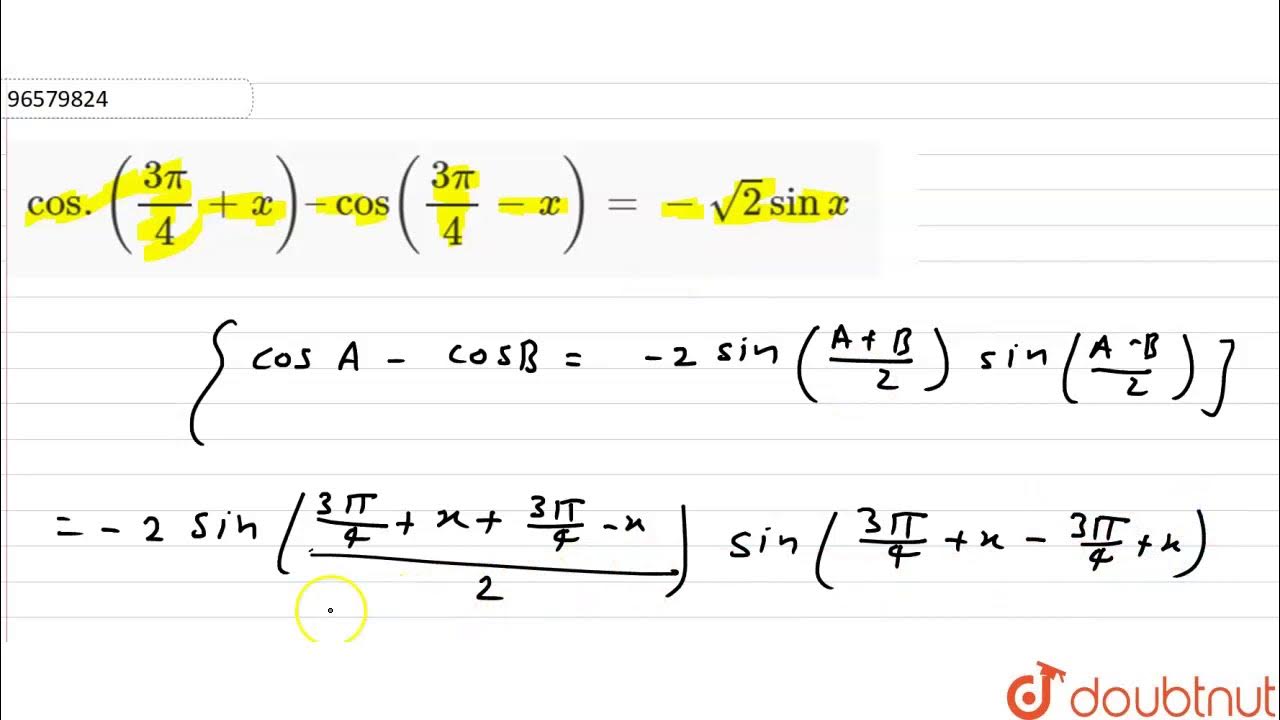 96579824
cos. (3π/4 + x) – cos(3π/4 − x) = −√2 sin x
{ cos A - cos B = -2 sin (A + B / 2) sin (A - B / 2) }
= - 2 sin (3π/4 + x + 3π/4 - x / 2) sin (3π/4 + x - 3π/4 + x)
doubtnut